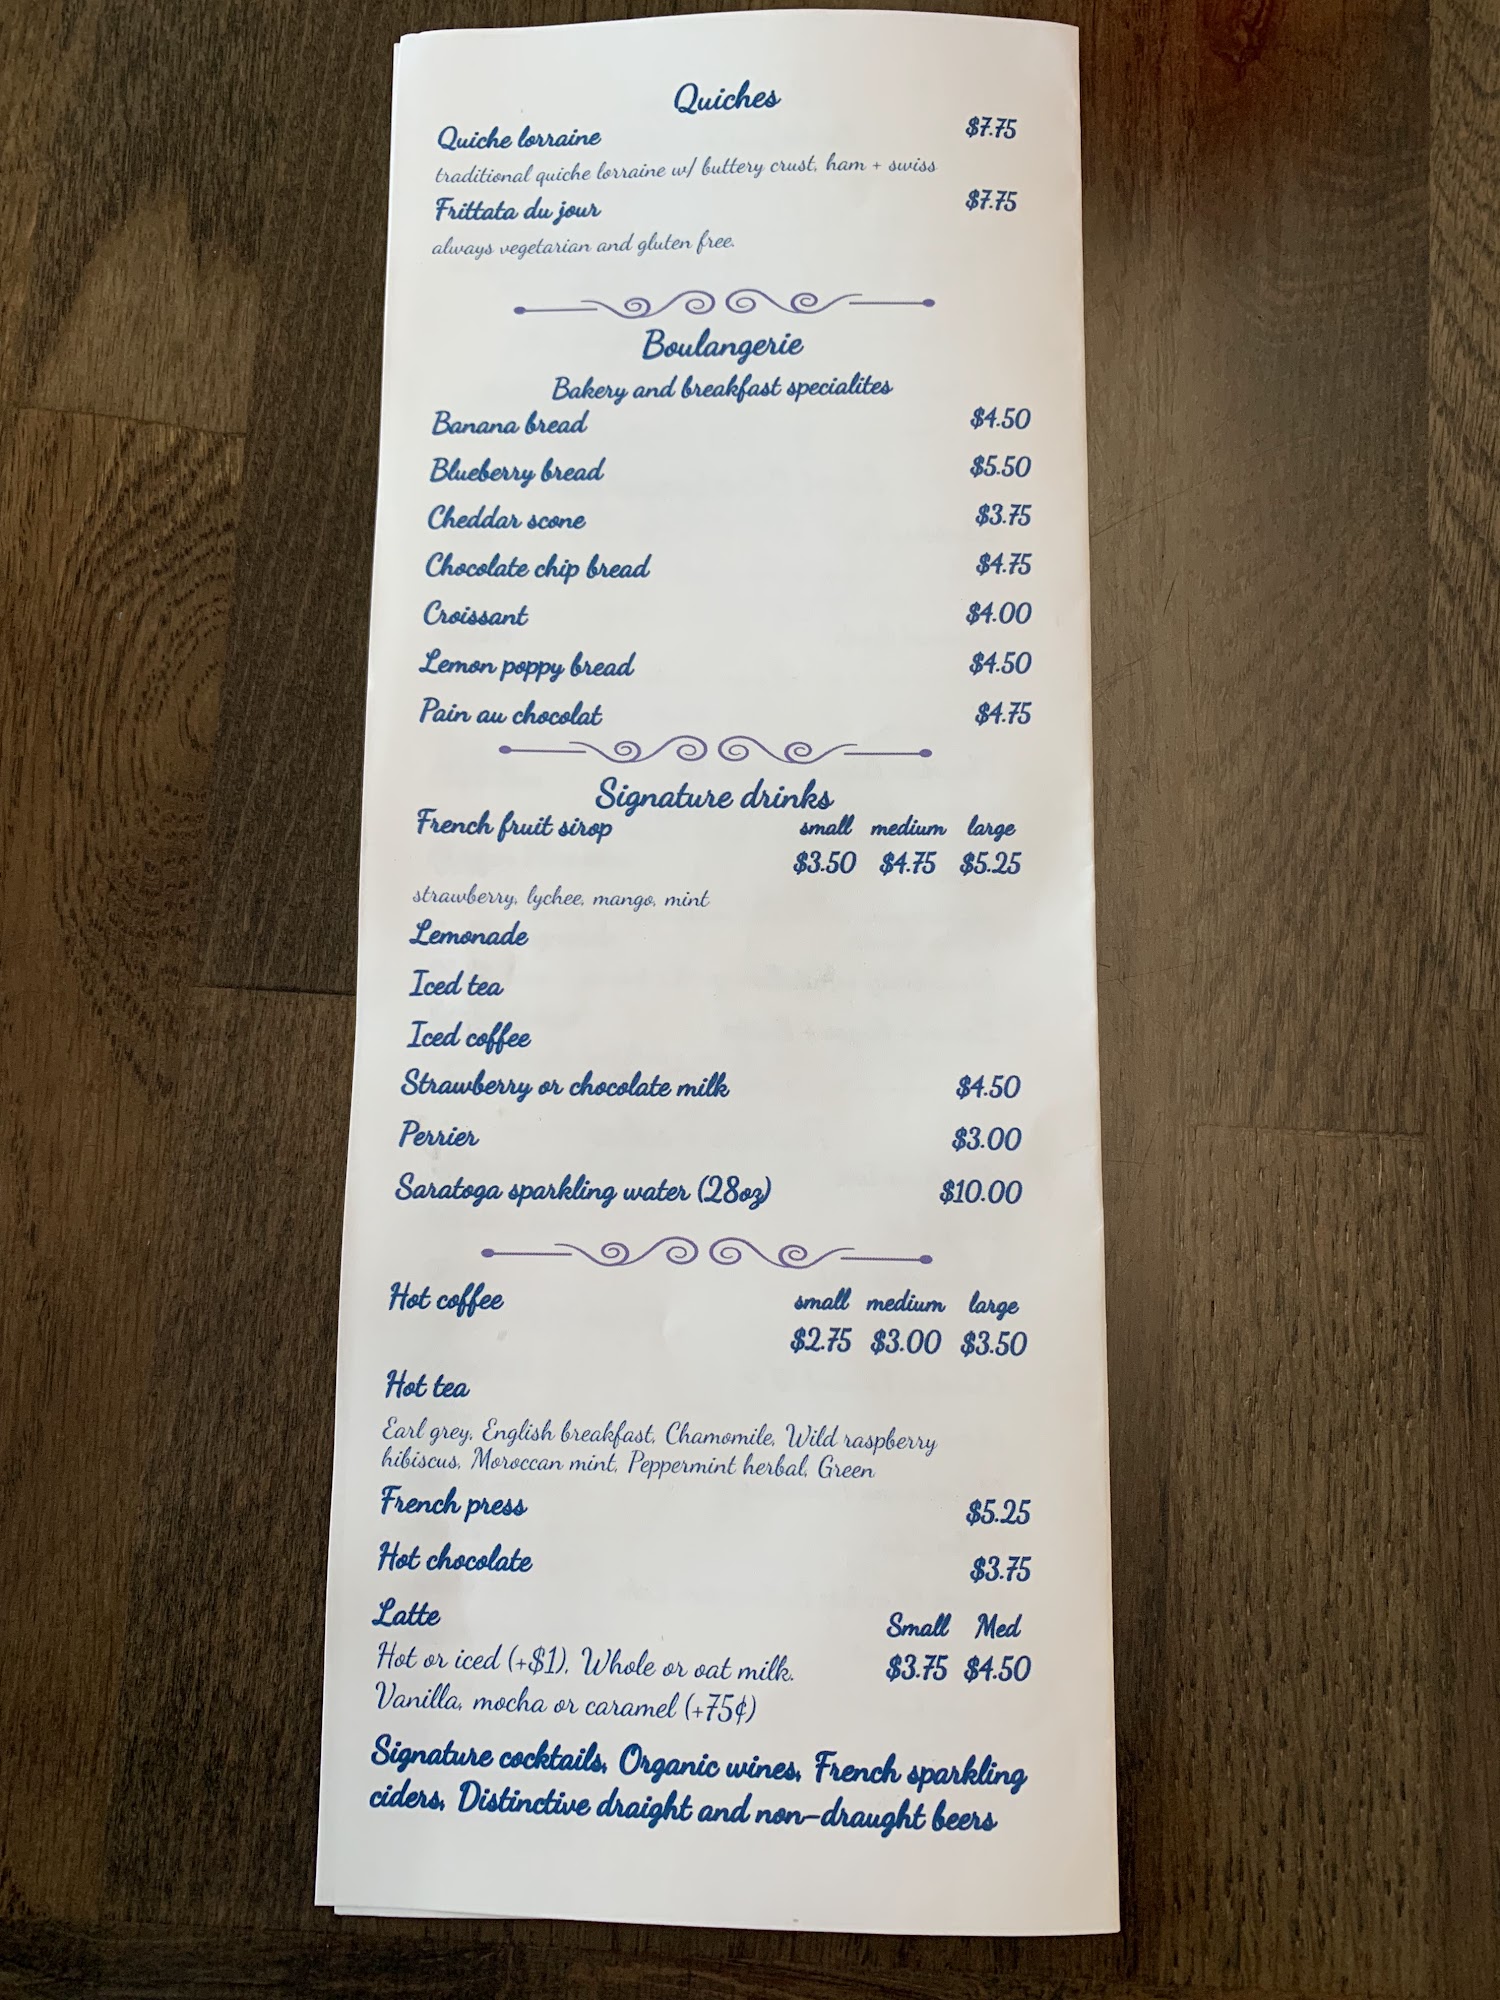 Quiches
Quiche lorraine $7.75
traditional quiche lorraine w/ buttery crust, ham + swiss
Frittata du jour $7.75
always vegetarian and gluten free.
Boulangerie
Bakery and breakfast specialites
Banana bread $4.50
Blueberry bread $5.50
Cheddar scone $3.75
Chocolate chip bread $4.75
Croissant $4.00
Lemon poppy bread $4.50
Pain au chocolat $4.75
Signature drinks
French fruit sirop small medium large
$3.50 $4.75 $5.25
strawberry, lychee, mango, mint
Lemonade
Iced tea
Iced coffee
Strawberry or chocolate milk $4.50
Perrier $3.00
Saratoga sparkling water (28oz) $10.00
Hot coffee small medium large
$2.75 $3.00 $3.50
Hot tea
Earl grey, English breakfast, Chamomile, Wild raspberry
hibiscus, Moroccan mint, Peppermint herbal, Green
French press $5.25
Hot chocolate $3.75
Latte Small Med
Hot or iced (+$1), Whole or oat milk. $3.75 $4.50
Vanilla, mocha or caramel (+75¢)
Signature cocktails, Organic wines, French sparkling
ciders, Distinctive draight and non-draught beers